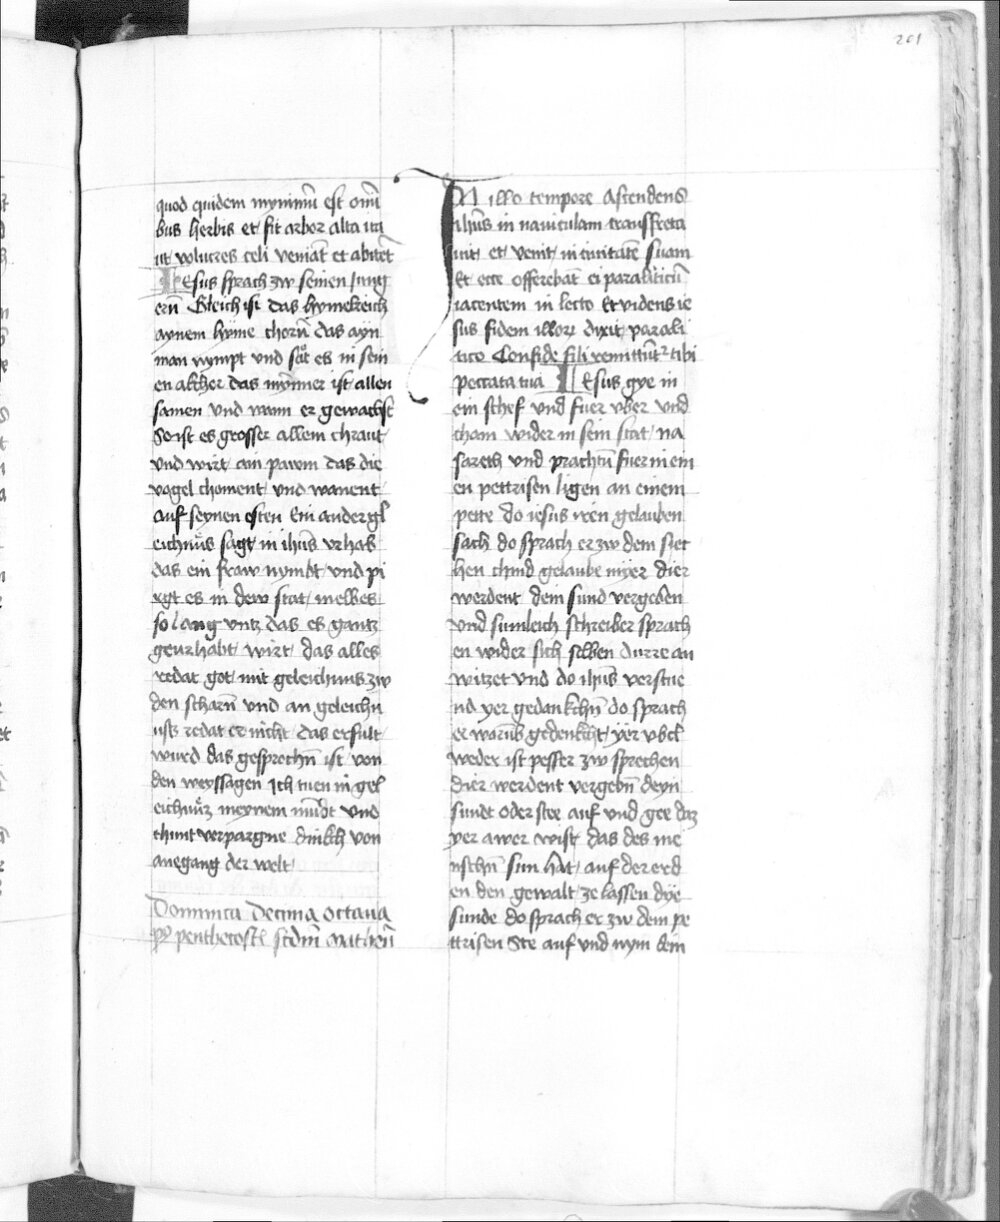 201
quod quidem mynimū est omī
bus herbis et fit arbor alta ita
ut volucres celi veniāt et abitēt
Iesus sprach zw seinen Jung
ern̄ Gleich ist das hymelreich
aynem hyme chorn̄ das ayn
man nympt und sāt es in sein
en akcher das mynner ist allen
samen und wann er gewachst
So ist es grosser allem chraut
und wirt ain pawm das die
vogel choment und wanent
auf seynen esten Ein ander gl
eichnus sagt in ihūs urhab
das ein fraw nymbt und pi
rgt es in dew stat melbes
so lang untz das es gantz
geurhabt wirt das alles
redat got mit geleichnus zw
den scharn̄ und an geleichn
uss redat er nicht das erfult
wurd das gesprochn̄ ist von
den weyssagen Ich tuen in gel
eichnuz meynem mūdt und
chunt verpargne dinkch von
anegang der welt
Dominica Decima octava
p9 penthecostē scdm̄ Matheū
IN illo tempore Ascendens
ihūs in naviculam transfreta
uit et venit in civitatē suam
Et ecce offerebāt ei paraliticū
iacentem in lecto Et videns ie
sus fidem illorꝝ dixit parali
tico Confide fili remittūt² tibi
peccata tua Iesus gye in
ein schef und fuer uber und
cham wider in sein stat na
sareth und prachtn̄ fuer in ein
en pettrisen ligen an einem
pette do iesus iren gelauben
sach do sprach er zw dem siet
hen chind gelaube myer dier
werdent dein sund vergeben
und sumleich schreiber sprach
en wider sich selben durre an
witzet und do ihūs verstue
nd yer gedankchn̄ do sprach
er warūb gedenkcht yer ubel
weder ist pesser zw sprechen
dier werdent vergebn̄ deyn
sundt oder stee auf und gee daz
yer awer wist das des me
nschn̄ sun hat auf der erd
en den gewalt ze lassen dye
sunde do sprach er zw dem pe
ttrisen Ste auf und nym dein